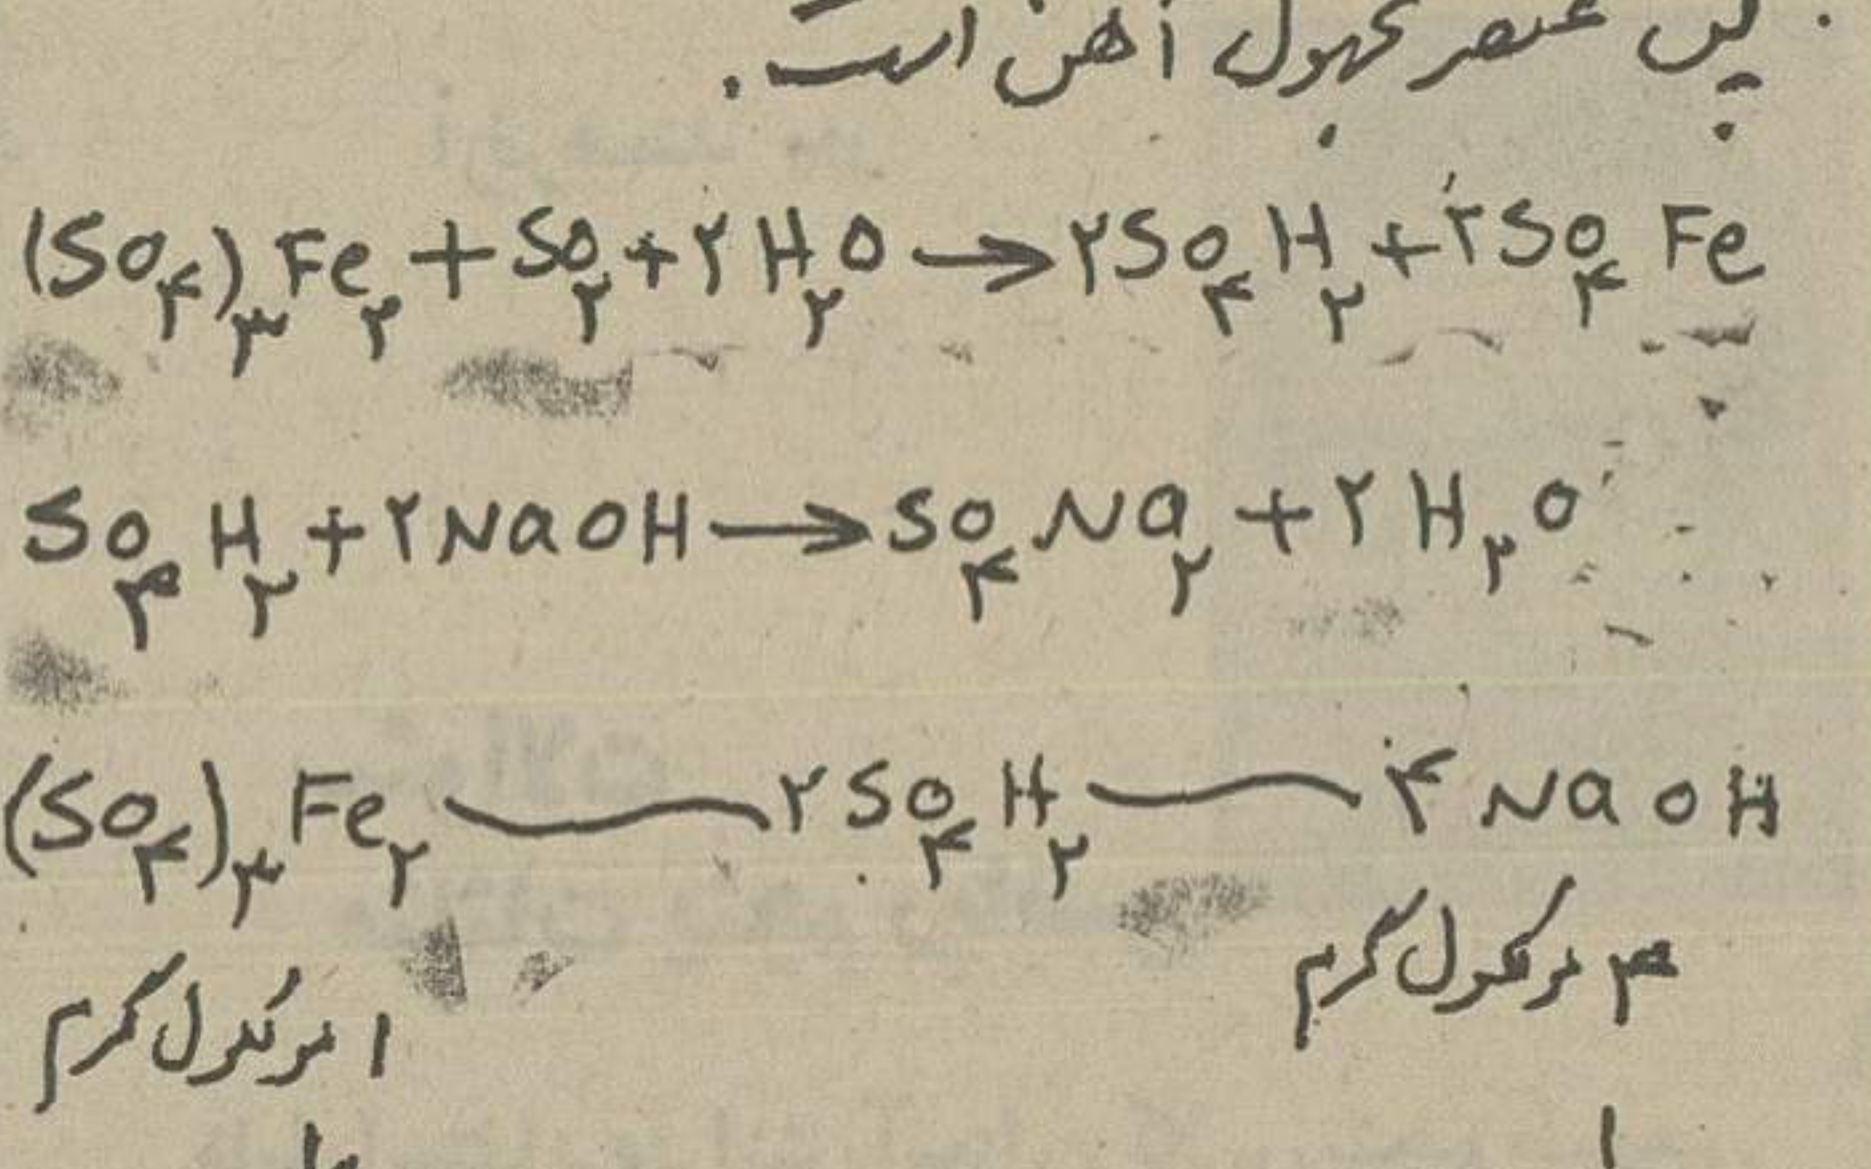 پس عنصر مجهول آهن است.
(So۴)۳Fe۲ + So۲ + ۲H۲o → ۲So۴H۲ + ۲So۴Fe
So۴H۲ + ۲NaoH → So۴Na۲ + ۲H۲o
(So۴)۳Fe۲ — ۲So۴H۲ — ۴NaoH
۴ مولکول گرم
۱ مولکول گرم